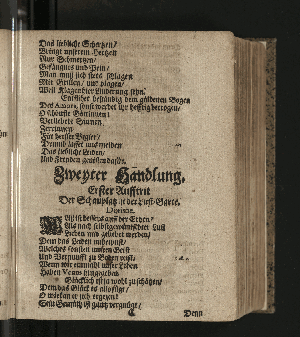 Das liebliche Schertzen/
Bringt unserem Hertzen
Nur Schmertzen/
Gefängnus und Pein/
Man muß sich stets schlagen
Mit Grillen/ und plagen/
Weil Klagen der Linderung sehn.
Entfliehet beständig dem güldenen Bogen
Des Amors, sonst werdet ihr hefftig betrogen/
O schönste Göttinnen!
Verliebete Sinnen
Zerrinnen
Für Begier/
Demnach lasset uns meiden
Das liebliche Leiden/
Und Freuden geniessen dafür.
Zweyter Handlung.
Erster Aufftritt
Der Schauplatz ist der Lust-Garte.
Was ist bessers auff der Erden/
Als nach selbst gewünschter Lust
Lieben und geliebet werden/
Dem das Leiden unbewust/
Welches sonsten unsern Geist
Und Vernunfft zu Boden reist.
Wenn wir einmahl unser Leben
Haben Venus hingegeben
Glücklich ist ja wohl zu schätzen/
Dem das Glück es also fügt/
O wie kan er sich ergetzen
Sein Gemüth ist gantz vergnügt/
C Denn